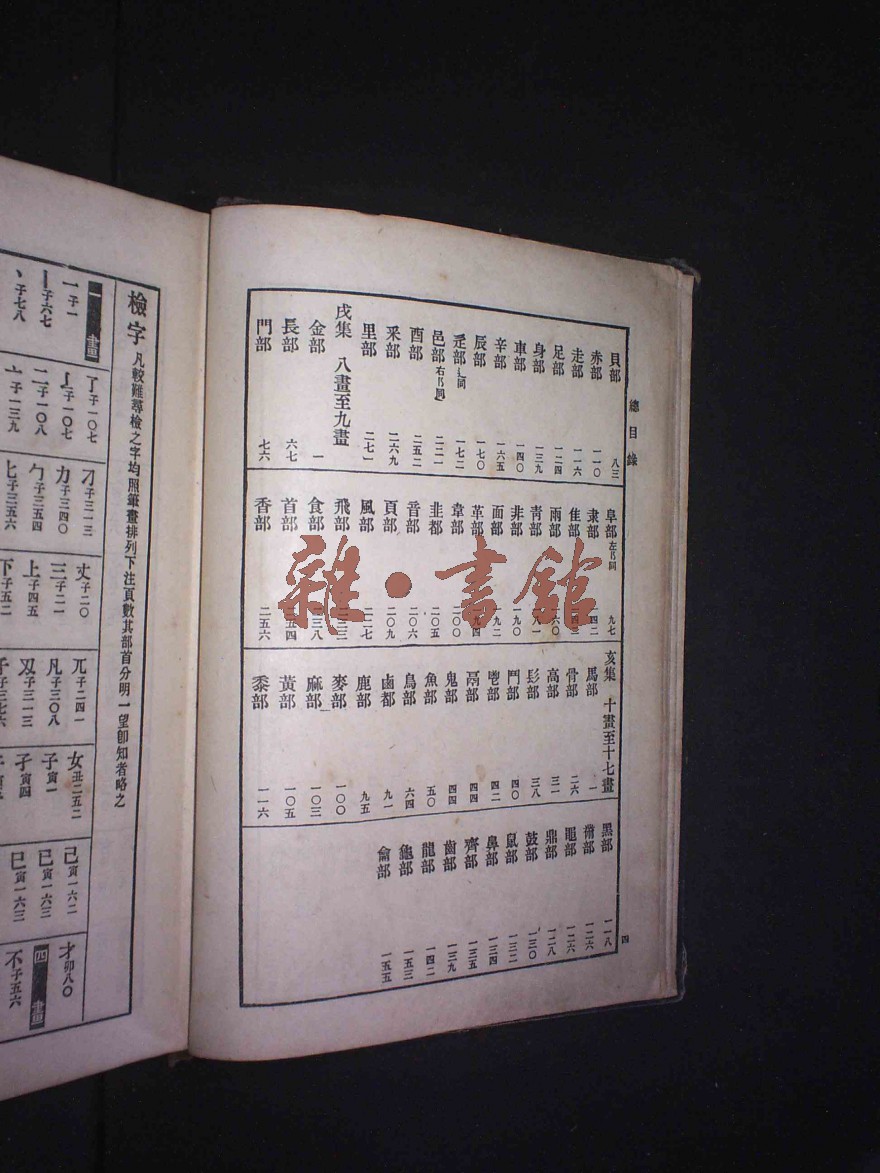 總目錄
貝部 八三
赤部 一一〇
走部 一一六
足部 一二四
身部 一三九
車部 一四〇
辛部 一六五
辰部 一七〇
辵部 辶同 一七二
邑部 右阝同 二二一
酉部 二五二
釆部 二六九
里部 二七一
戌集 八畫至九畫
金部 一
長部 六七
門部 七六
阜部 左阝同 九七
隶部
隹部
雨部
青部
非部 一九〇
面部 一九二
革部
韋部 二〇〇
韭部 二〇五
音部 二〇六
頁部 二〇九
風部 二二七
飛部
食部 二三八
首部 二五四
香部 二五六
亥集 十畫至十七畫
馬部 一
骨部 二六
高部 三一
髟部 三八
鬥部 四〇
鬯部 四二
鬲部 四四
鬼部 四四
魚部 五〇
鳥部 六四
鹵部 九一
鹿部 九五
麥部 一〇〇
麻部 一〇三
黃部 一〇五
黍部 一一六
黑部 一一八
黹部 一二六
黽部 一二六
鼎部 一二八
鼓部 一三〇
鼠部 一三二
鼻部 一三四
齊部 一三五
齒部 一三九
龍部 一四二
龜部 一五三
龠部 一五五
四
雜·書館
檢字 凡較難尋檢之字均照筆畫排列下注頁數其部首分明一望卽知者略之
一畫
一 子一
丨 子六七
丶 子七八
了 子一〇七
亅 子一〇七
二 子一〇八
亠 子一三九
刁 子三一三
力 子三四〇
勹 子三五四
匕 子三五六
丈 子二〇
三 子二一
上 子四五
下 子五二
兀 子二四一
凡 子三〇八
刄 子三一三
女 丑二五二
子 寅一
孑 寅四
己 寅一六二
已 寅一六三
巳 寅一六三
才 卯八〇
四畫
不 子五六